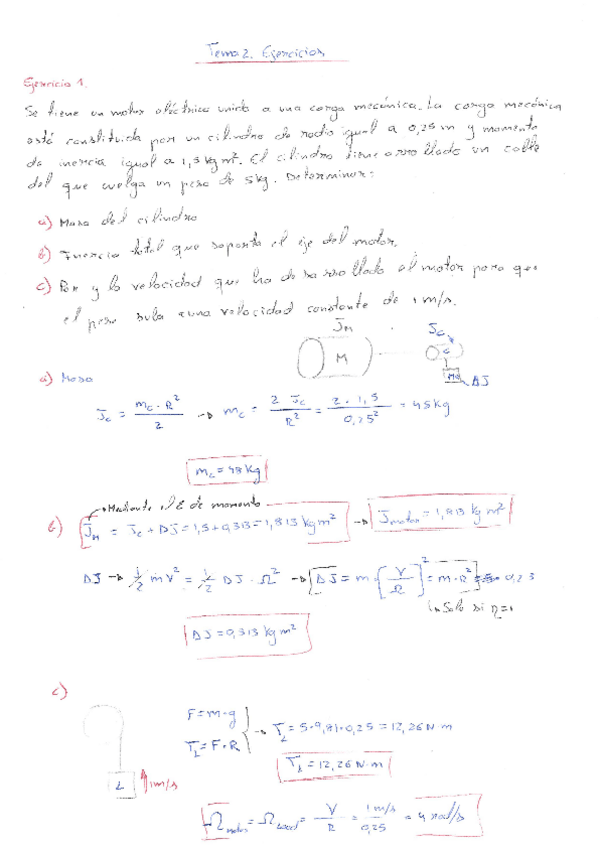 Tema 2. Ejercicios
Ejercicio 1.
Se tiene un motor eléctrico unido a una carga mecánica. La carga mecánica
está constituida por un cilindro de radio igual a 0,25 m y momento
de inercia igual a 1,5 kg m². El cilindro tiene arrollado un cable
del que cuelga un peso de 5kg. Determinar:
a) Masa del cilindro
b) Inercia total que soporta el eje del motor.
c) Par y la velocidad que ha desarrollado el motor para que
el peso suba a una velocidad constante de 1 m/s.
J_M J_C
M C
ΔJ
a) Masa
J_C = m_C · R² / 2 → m_C = 2 J_C / R² = 2 · 1,5 / 0,25² = 48 kg
m_C = 48 kg
Mediante el Σ de momento
b) J_M = J_C + ΔJ = 1,5 + 0,313 = 1,813 kg m² → J_motor = 1,813 kg m²
ΔJ → 1/2 m V² = 1/2 ΔJ · Ω² → ΔJ = m · [V/Ω]² = m · R² = 0,23
Solo si η=1
ΔJ = 0,313 kg m²
c)
F = m · g
T_L = F · R
→ T_L = 5 · 9,81 · 0,25 = 12,26 N·m
T_L = 12,26 N·m
L 1 m/s
Ω_motor = Ω_load = V/R = 1 m/s / 0,25 = 4 rad/s